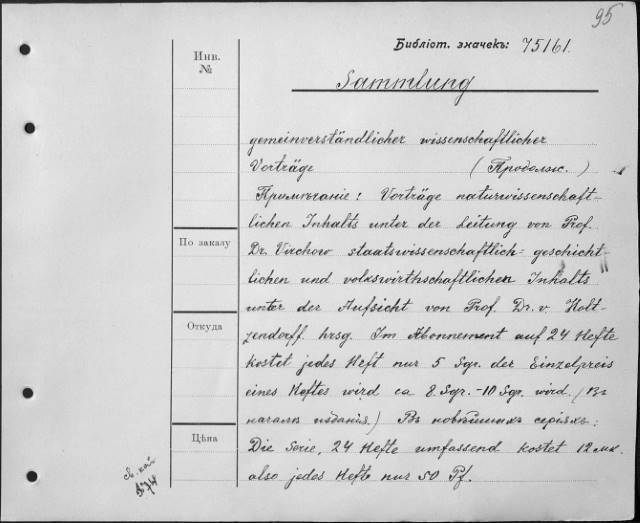 95
Библіот. значекъ: 75161.
Sammlung
Инв. №
gemeinverständlicher wissenschaftlicher
Vorträge (Продолж.)
Примѣчаніе: Vorträge naturwissenschaft-
lichen Inhalts unter der Leitung von Prof.
По заказу
Dr. Virchow staatswissenschaftlich- geschicht
lichen und volkswirthschaftlichen Inhalts
unter der Aufsicht von Prof. Dr. v. Holt-
Откуда
zendorff hrsg. Im Abonnement auf 24 Hefte
kostet jedes Heft nur 5 Sgr. der Einzelpreis
eines Heftes wird ca 8 Sgr.-10 Sgr. wird. (Въ
началѣ изданія.) Въ новѣйшихъ серіяхъ:
Цѣна
Die Serie, 24 Hefte umfassend kostet 12 mk.
also jedes Hefte nur 50 Pf.